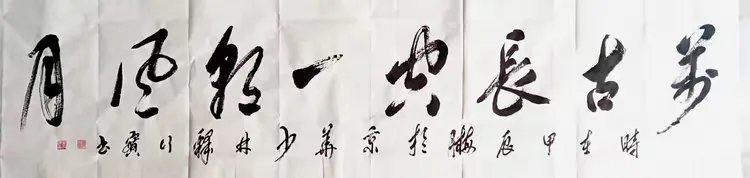 萬古長空一朝風月
時在甲辰臘於京華少林釋行賓書